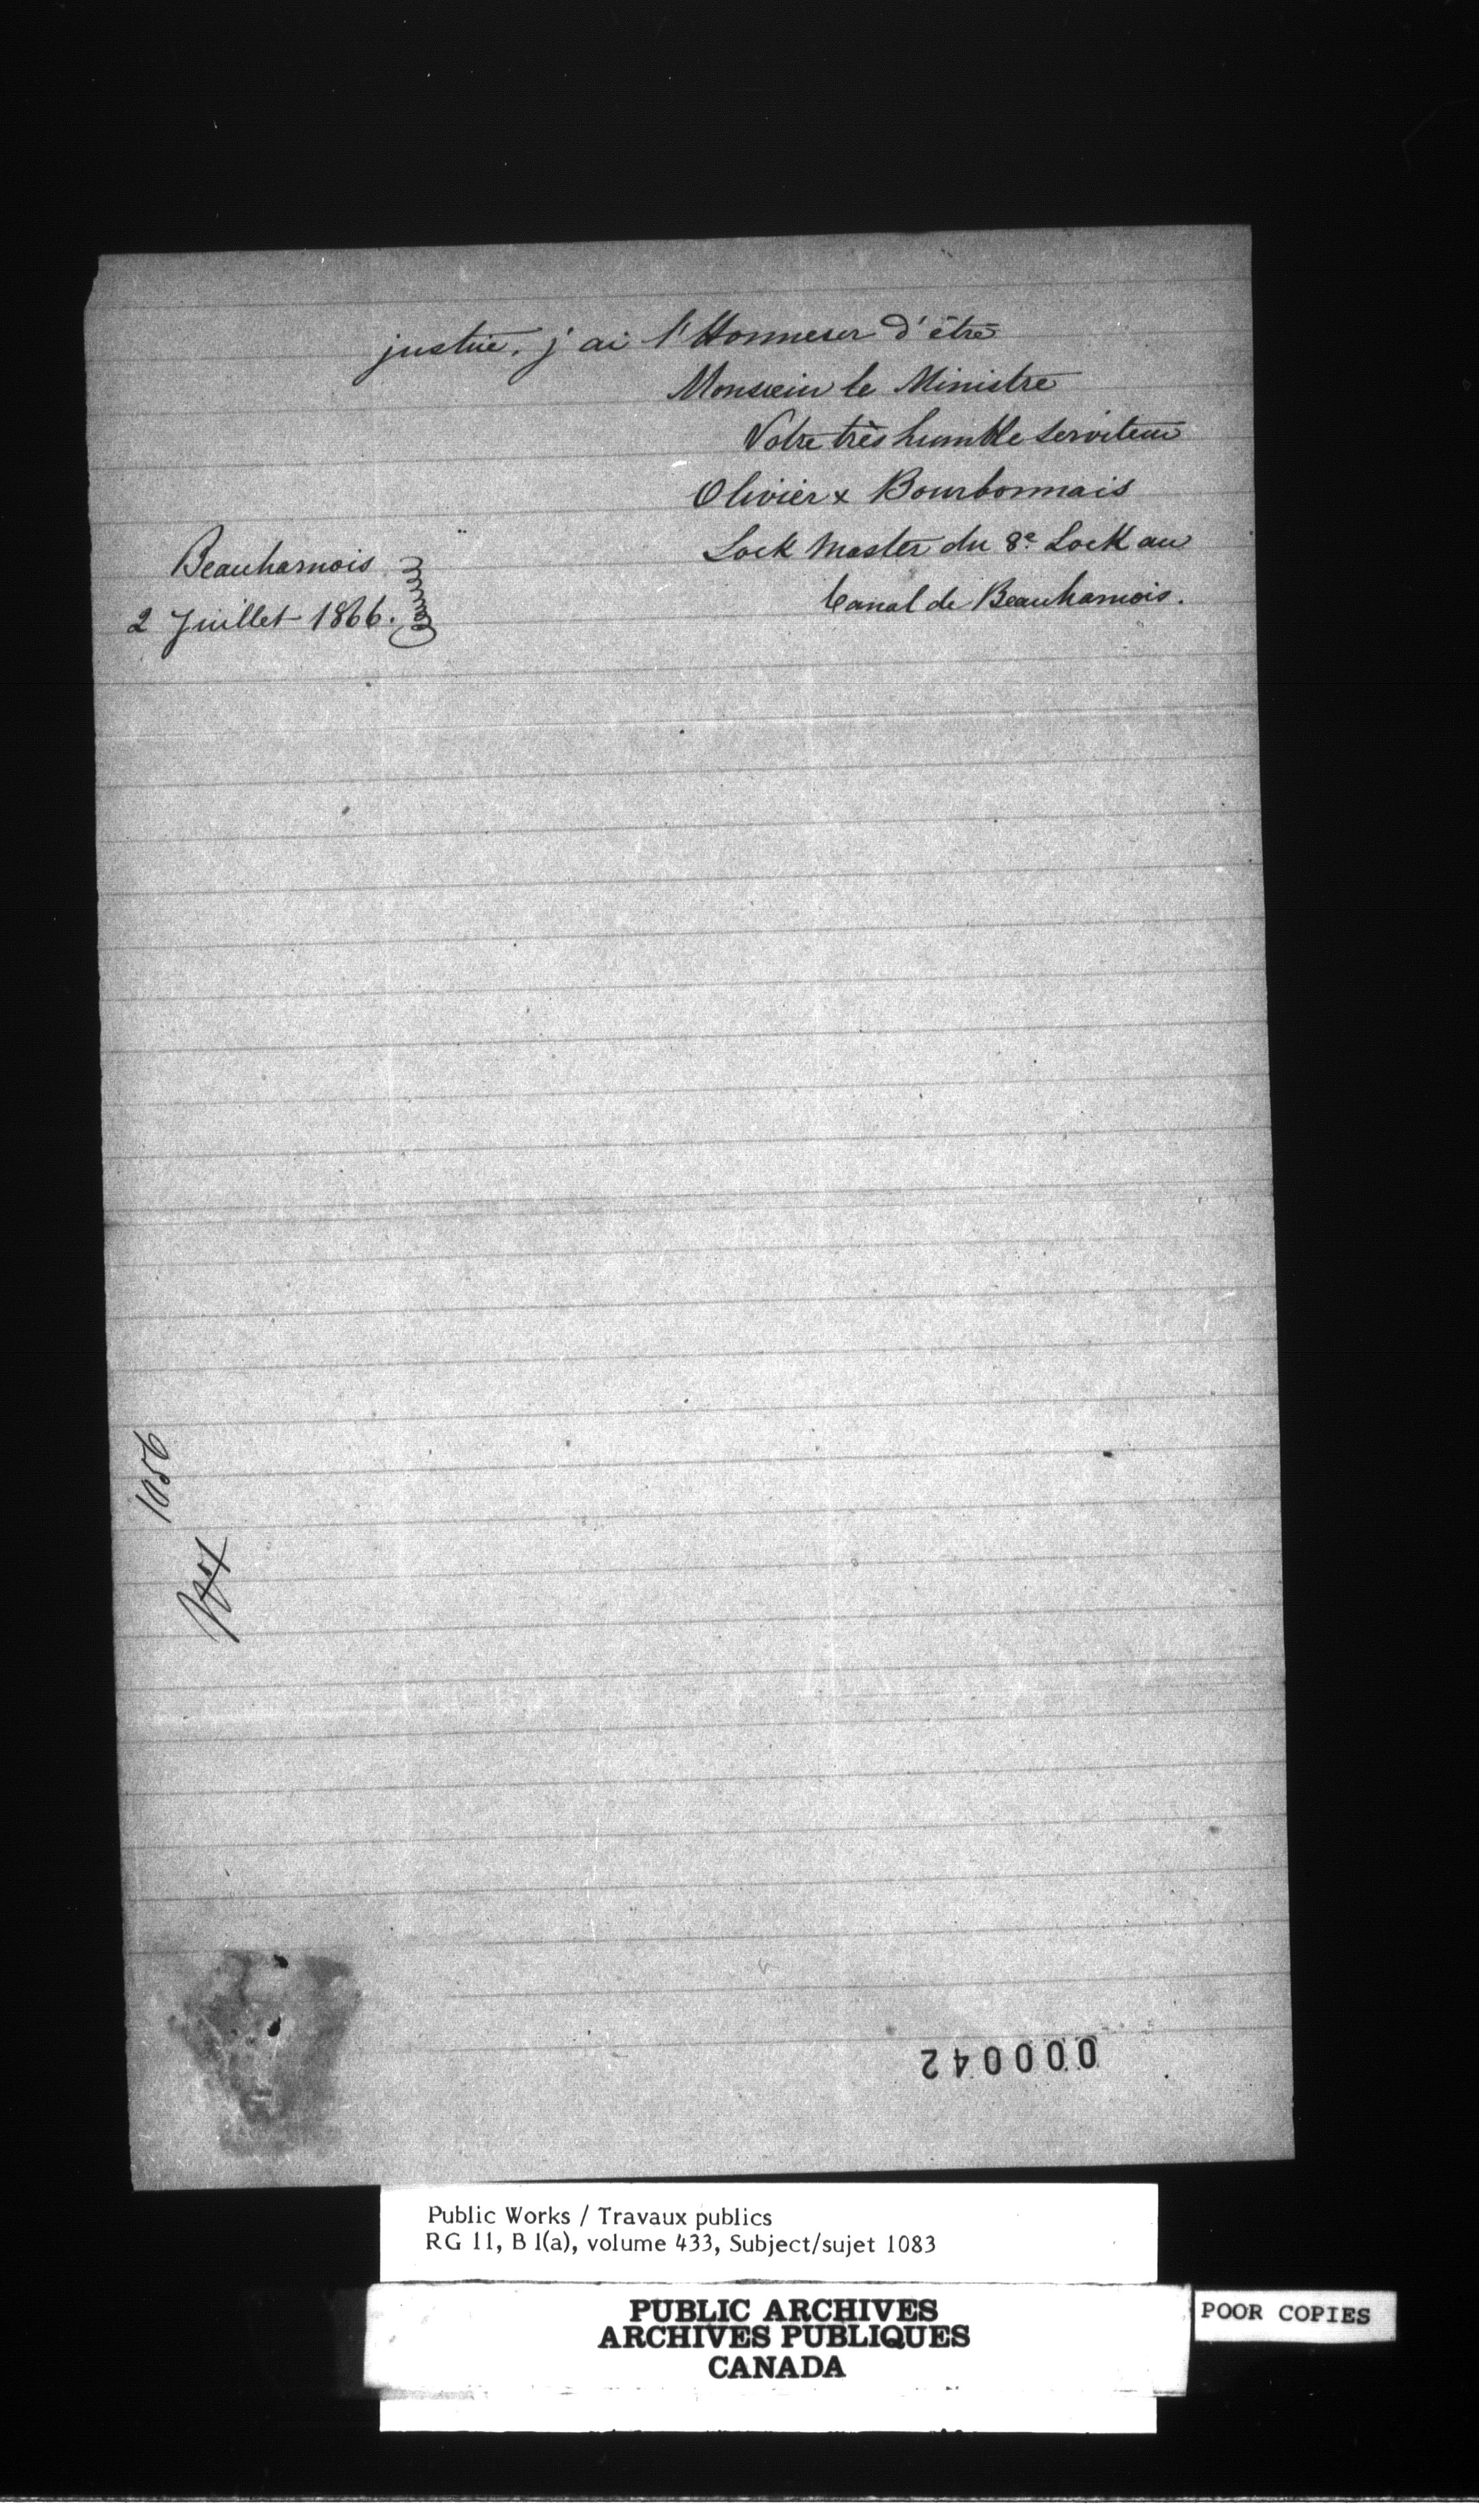 justice. j'ai l'Honneur d'être
Monsieur le Ministre
Votre très humble serviteur
Olivier x Bourbonnais
Lock Master du 8e Lock au
Canal de Beauharnois.
Beauharnois
2 Juillet 1866.
1056
000042
Public Works / Travaux publics
RG 11, B 1(a), volume 433, Subject/sujet 1083
PUBLIC ARCHIVES
ARCHIVES PUBLIQUES
CANADA
POOR COPIES